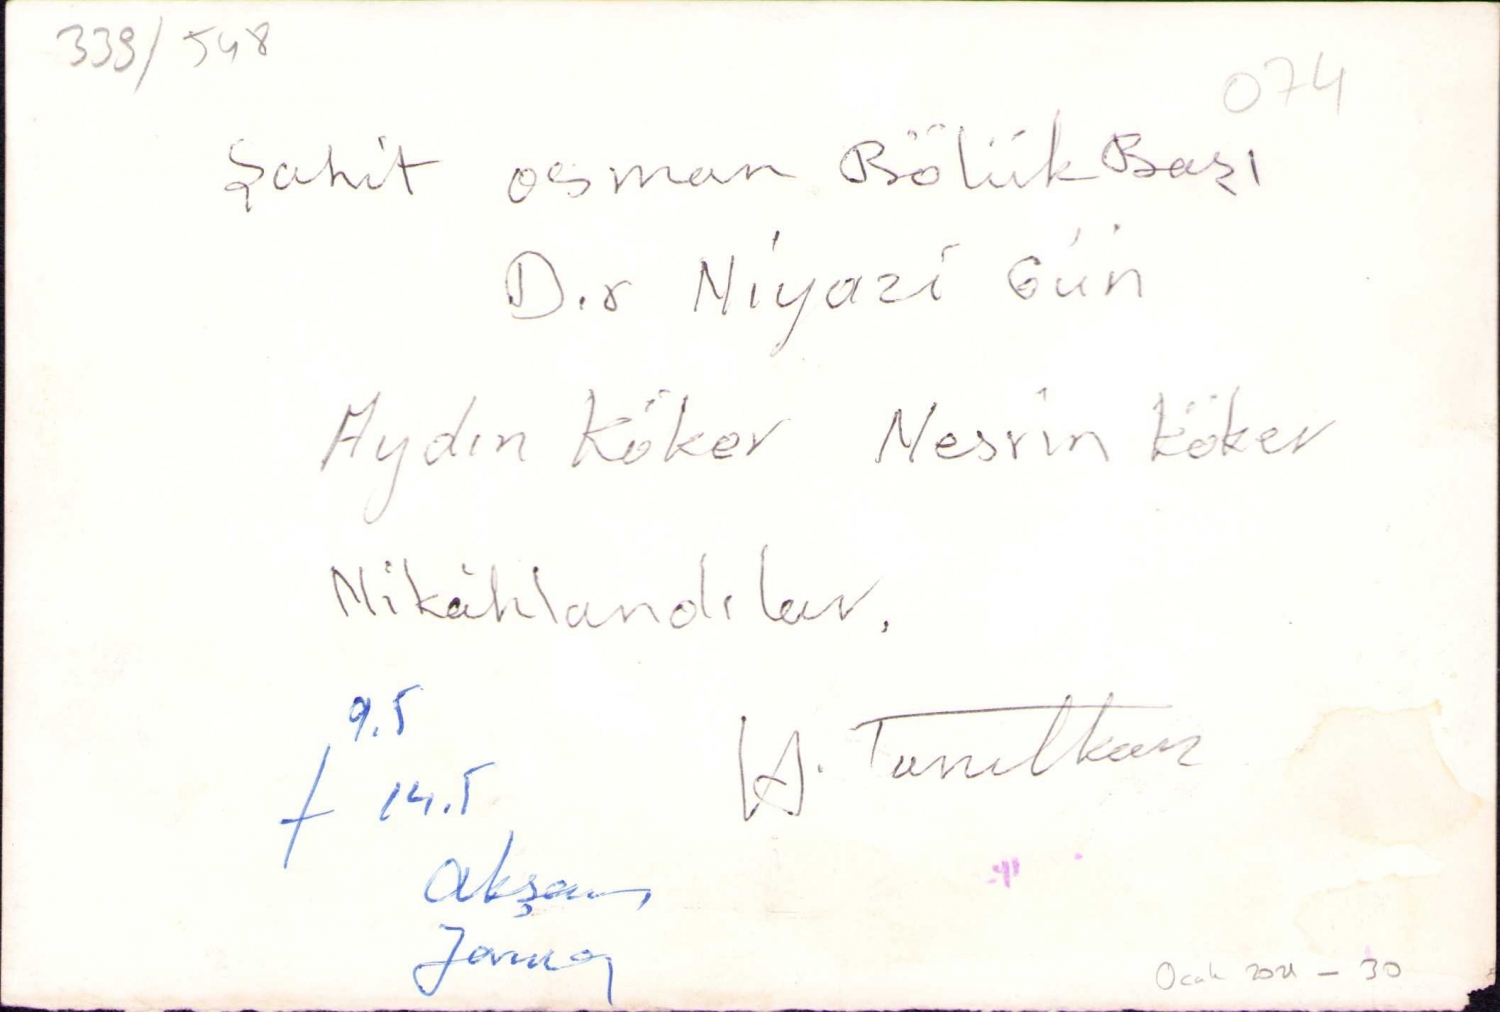 339/548
074
Şahit Osman BölükBaşı
D.r Niyazi Gün
Aydın Köker Nesrin Köker
Nikâhlandılar.
9.5
14.5
H. Tunilkan
Akşam
Ocak 2021 - 30